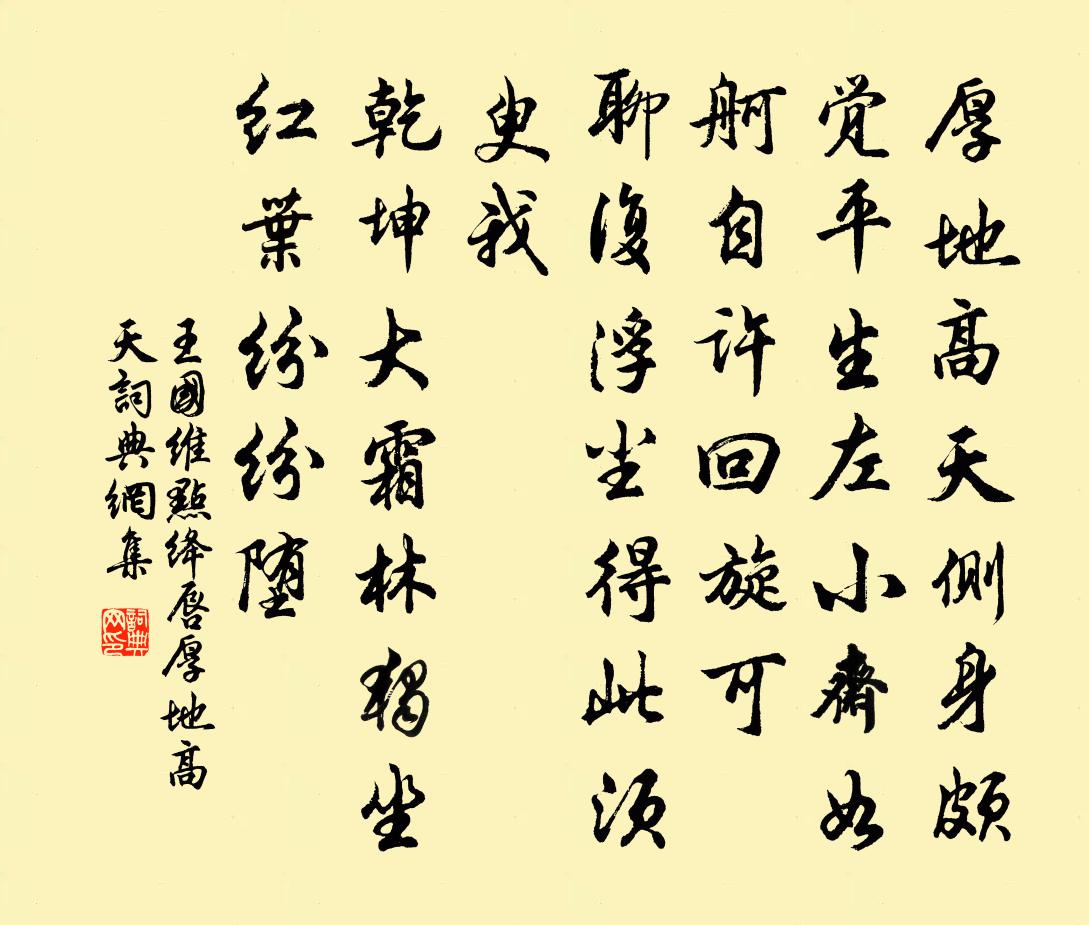 厚地高天側身頗
覚平生左小齋如
舸自許回旋可
聊復浮尘得此須
臾我
乾坤大霜林独坐
红葉纷纷堕
王國維點绛唇厚地高
天詞典網集
詞典